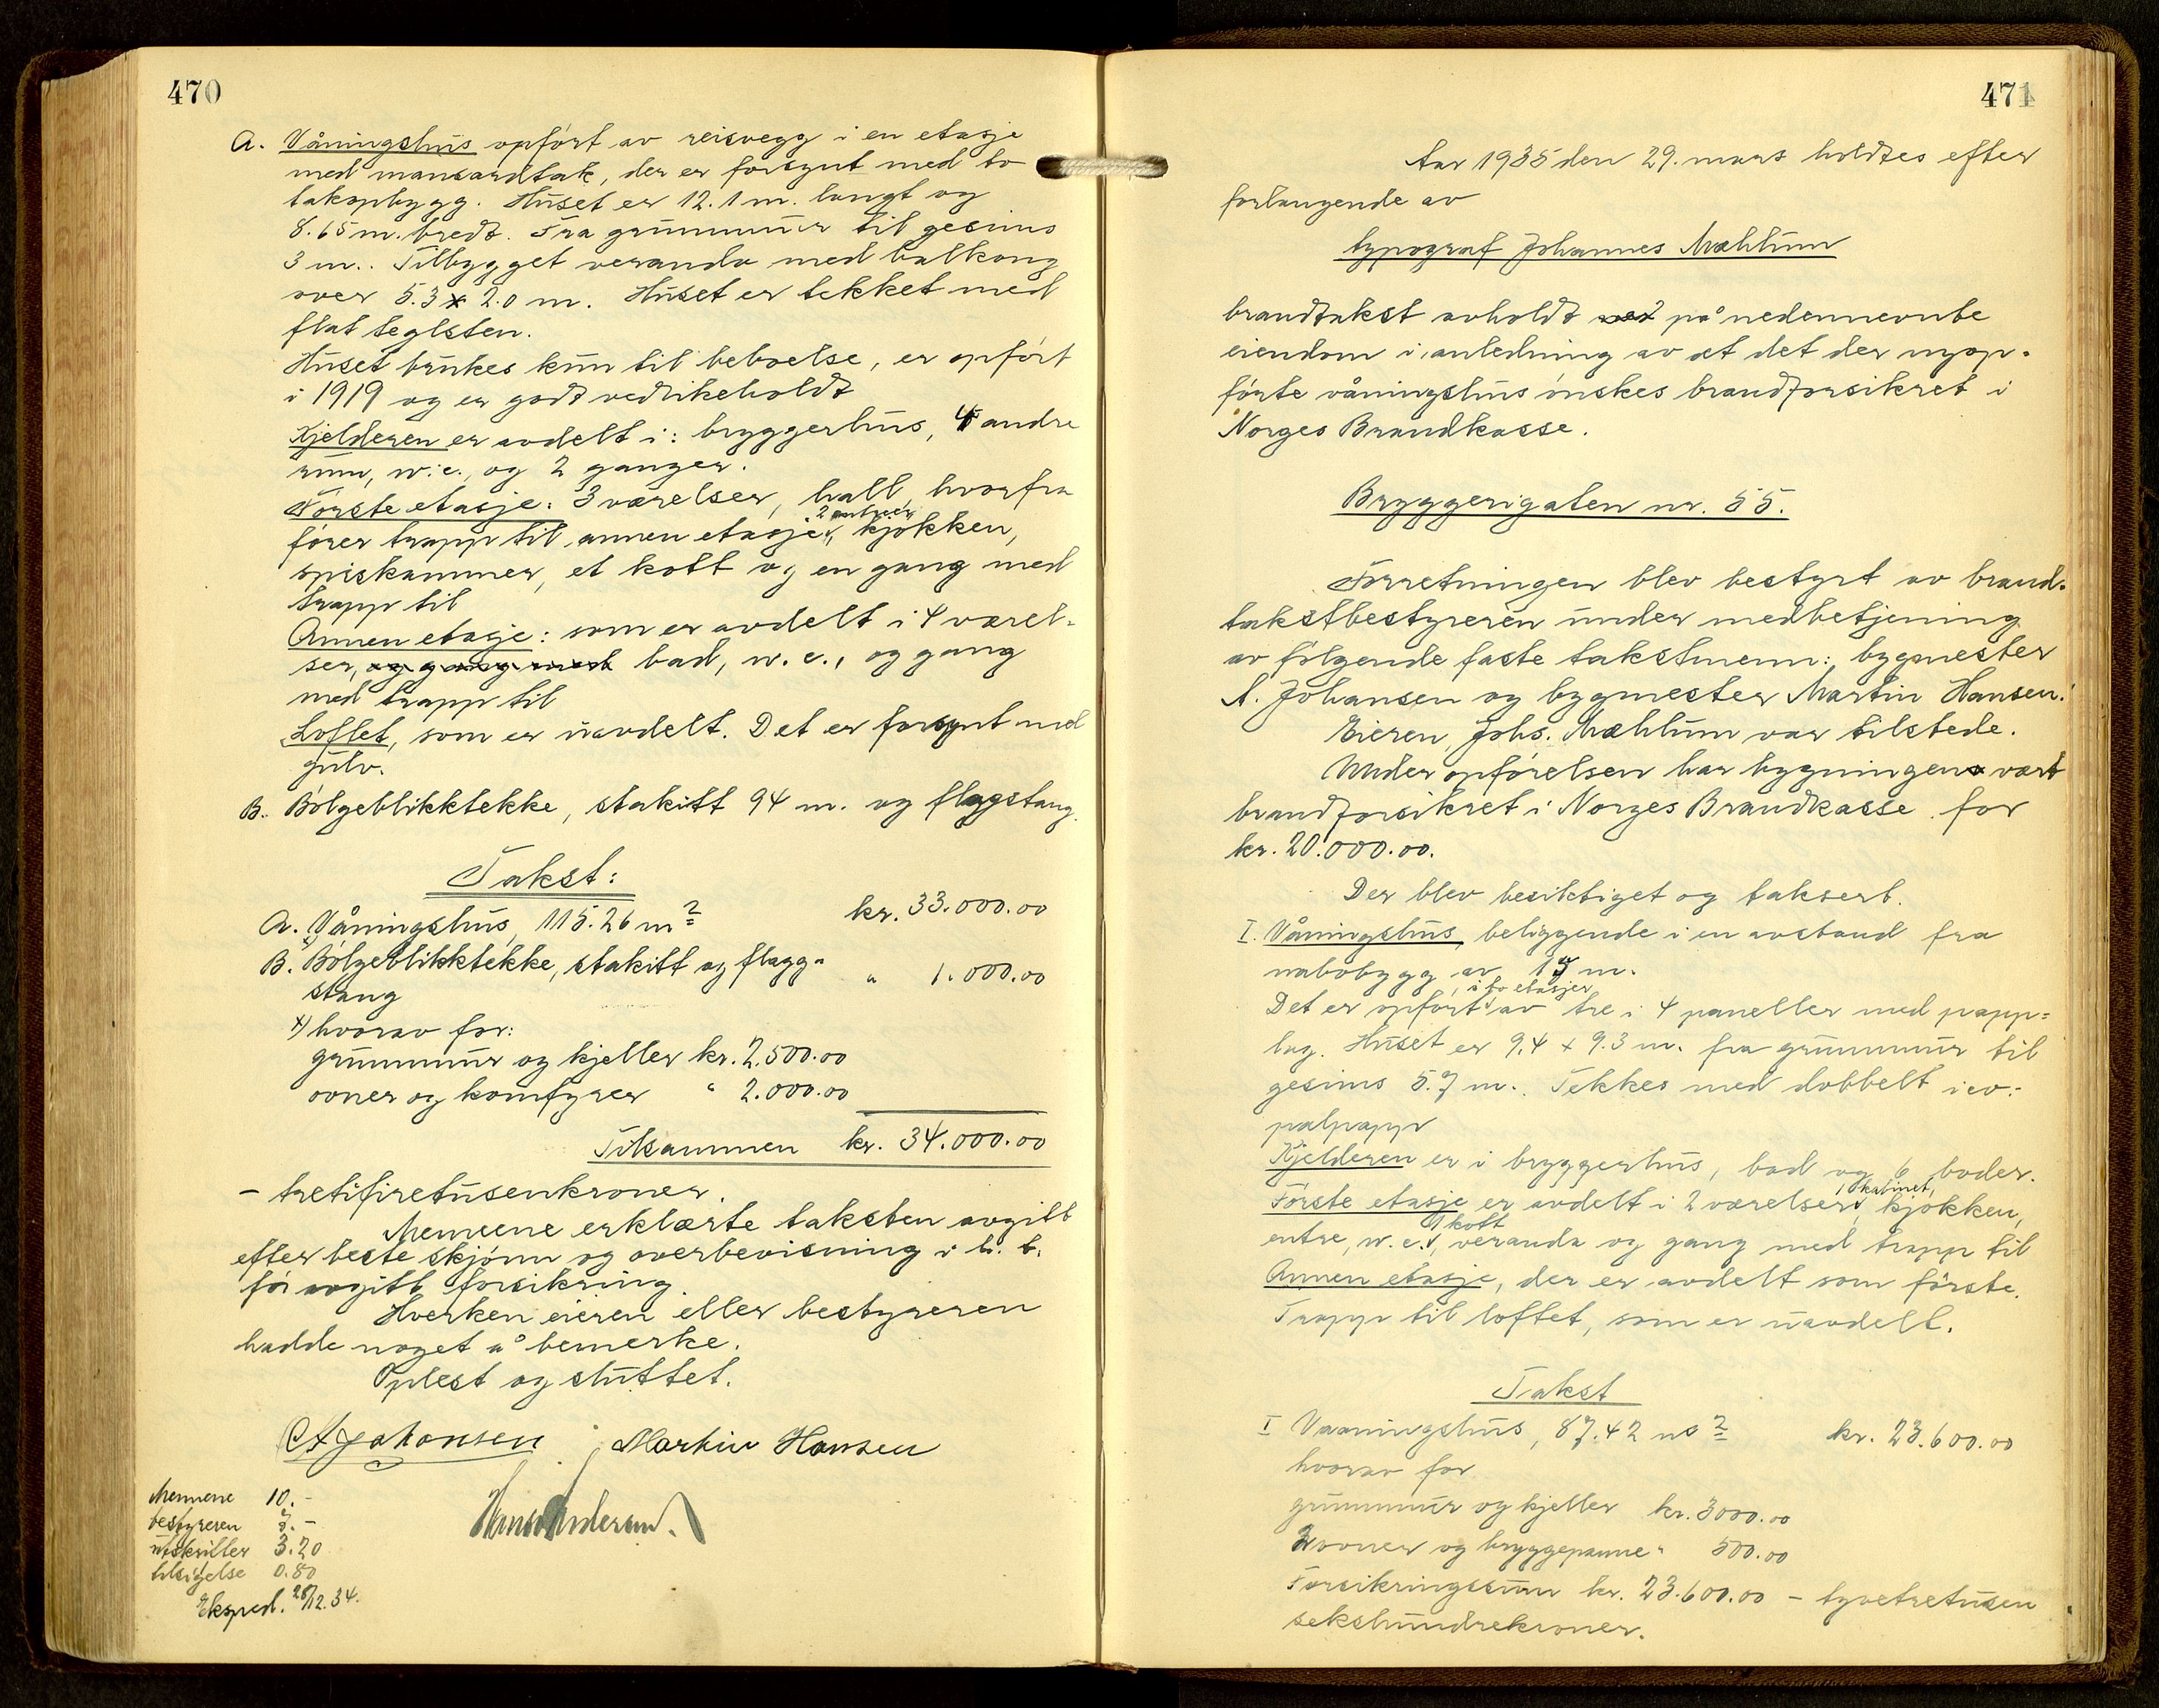 470
A. Våningshus opført av reisvegg i en etasje
med mansardtak, der er forsynt med to
takopbygg. Huset er 12.1 m. langt og
8.65 m. bredt. Fra grunnmur til gesims
3 m.. Tilbygget veranda med balkong
over 5.3 x 2.0 m. Huset er tekket med
flat teglsten.
Huset brukes kun til beboelse, er opført
i 1919 og er godt vedlikeholdt
Kjelderen er avdelt i: bryggerhus, 4 andre
rum, w.c., og 2 ganger.
Første etasje: 3 værelser, hall, hvorfra
fører trapp til annen etasje, 2 entreer, kjøkken,
spiskammer, et kott og en gang med
trapp til
Annen etasje: som er avdelt i 4 værel-
ser, og gang med bad, w.c., og gang
med trapp til
Loftet, som er uavdelt. Det er forsynt med
gulv.
B. Bølgeblikktekke, stakitt 94 m. og flaggstang.
Takst:
A. Våningshus, 115.26 m² kr. 33.000.00
B. x) Bølgeblikktekke, stakitt og flagg-
stang " 1.000.00
x) hvorav for:
grunnmur og kjeller kr. 2.500.00
ovner og komfyrer " 2.000.00
Tilsammen kr. 34.000.00
- trettifiretusenkroner.
Mennene erklærte taksten avgitt
efter beste skjønn og overbevisning i h. t.
før avgitt forsikring.
Hverken eieren eller bestyreren
hadde noget å bemerke.
Oplest og sluttet.
A Johansen Martin Hansen
Hans Andersen.
Mennene 10.-
bestyreren 8.-
utskrifter 3.20
tilsigelse 0.80
Eksped. 28/12.34.
471
Aar 1935 den 29. mars holdtes efter
forlangende av
typograf Johannes Mæhlum
brandtakst avholdt ved på nedennevnte
eiendom i anledning av at det der nyop-
førte våningshus ønskes brandforsikret i
Norges Brandkasse.
Bryggerigaten nr. 55.
Forretningen blev bestyrt av brand-
takstbestyreren under medbetjening
av følgende faste takstmenn: bygmester
A. Johansen og bygmester Martin Hansen.
Eieren, Johs. Mæhlum var tilstede.
Under opførelsen har bygningen vært
brandforsikret i Norges Brandkasse for
kr. 20.000.00.
Der blev besiktiget og taksert.
I. Våningshus, beliggende i en avstand fra
nabobygg av m.
Det er opført, i to etasjer av tre i 4 paneller med papp-
lag. Huset er 9.4 x 9.3 m. fra grunnmur til
gesims 5.7 m. Tekkes med dobbelt ico-
palpapp
Kjelderen er i bryggerhus, bad og 6 boder.
Første etasje er avdelt i 2 værelser, 1 kabinet, kjøkken,
entre, w.c., 1 kott, veranda og gang med trapp til
Annen etasje, der er avdelt som første.
Trapp til loftet, som er uavdelt.
Takst
I Vaaningshus, 87.42 m² kr. 23.600.00
hvorav for
grunnmur og kjeller kr. 3000.00
2 ovner og bryggepanne " 500.00
Forsikringssum kr. 23.600.00 - tyvetretusen
sekshundrekroner.